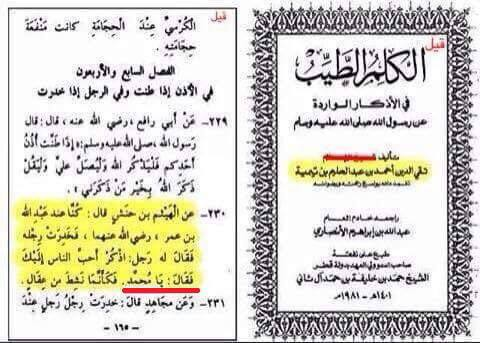 قيل
الكلم الطيب
في الأذكار الواردة
عن رسول الله صلى الله عليه وسلم
تأليف
تقي الدين أحمد بن عبد الحليم بن تيمية
تغمده الله بواسع رحمته ورضوانه
راجعه خادم العلم
عبدالله بن إبراهيم الأنصاري
طبع على نفقة
صاحب السمو ولي العهد بدولة قطر
الشيخ حمد بن خليفة بن حمد آل ثاني
١٤٠١هـ - ١٩٨١م
قيل
الْكُرْسِيِّ عِنْدَ الْحِجَامَةِ كانت مَنْفَعَةَ
حِجَامَتِهِ .
الفصل السابع والأربعون
في الأذن إذا طنت وفي الرجل إذا خدرت
٢٢٩- عَنْ أَبي رافع ، رضي الله عنه ، قال : قال
رسول الله ، صلى الله عليه وسلم : « إذَا طَنَّتْ أُذُنُ
أَحَدِكم فَلْيَذْكُرِ اللهَ ولْيُصَلِّ عليَّ ولْيَقُلْ
ذَكَرَ اللهُ بِخَيْرٍ مَنْ ذَكَرَني » .
٢٣٠- عن الهَيْثَم بن حَنَش قال : كُنَّا عند عَبْدِ الله
بن عمر ، رضي الله عنهما ، فَخَدِرَتْ رِجْلُه
فقالَ له رَجلٌ : اذْكُرْ أَحبَّ الناسِ إِلَيْكَ
فقال : يا مُحمَّد . فكأَنَّما نَشِطَ من عِقَالٍ .
٢٣١- وعَنْ مجاهدٍ قال : خدِرَتْ رِجْلُ رَجلٍ عِنْدَ
- ١٦٥ -